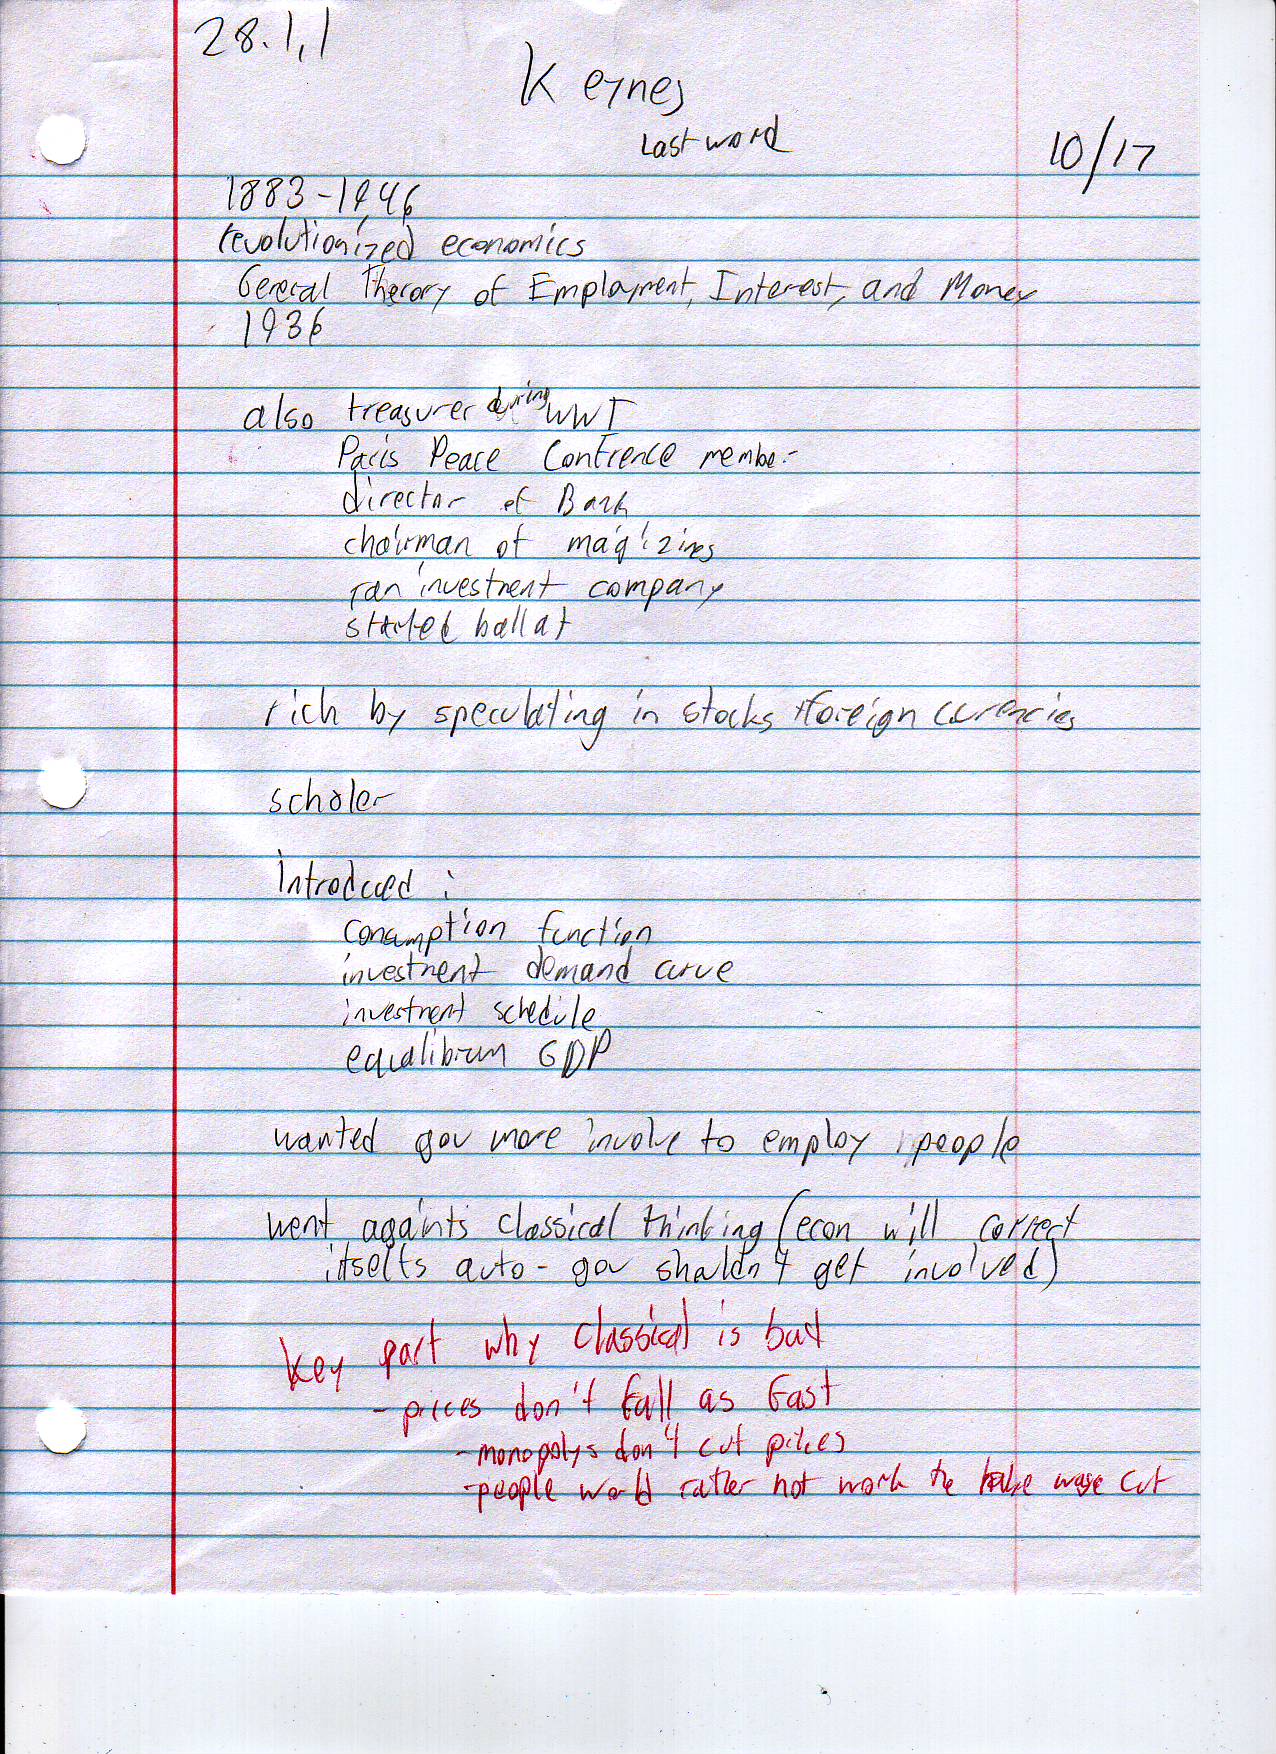 28.1.1
Keynes
Last word
10/17
1883-1946
revolutionized economics
General Theory of Employment, Interest, and Money
1936
also treasurer during WWI
Paris Peace Confrence member
director of Bank
chairman of magizines
ran investment company
started ballat
rich by speculating in stocks + foreign currencies
scholer
Introduced :
consumption function
investment demand curve
investment schedule
equalibrium GDP
wanted gov more involve to employ people
went againts classical thinking (econ will correct
itselfs auto - gov shouldn't get involved)
Key part why classical is bad
- prices don't fall as fast
- monopolys don't cut prices
- people would rather not work the take wage cut